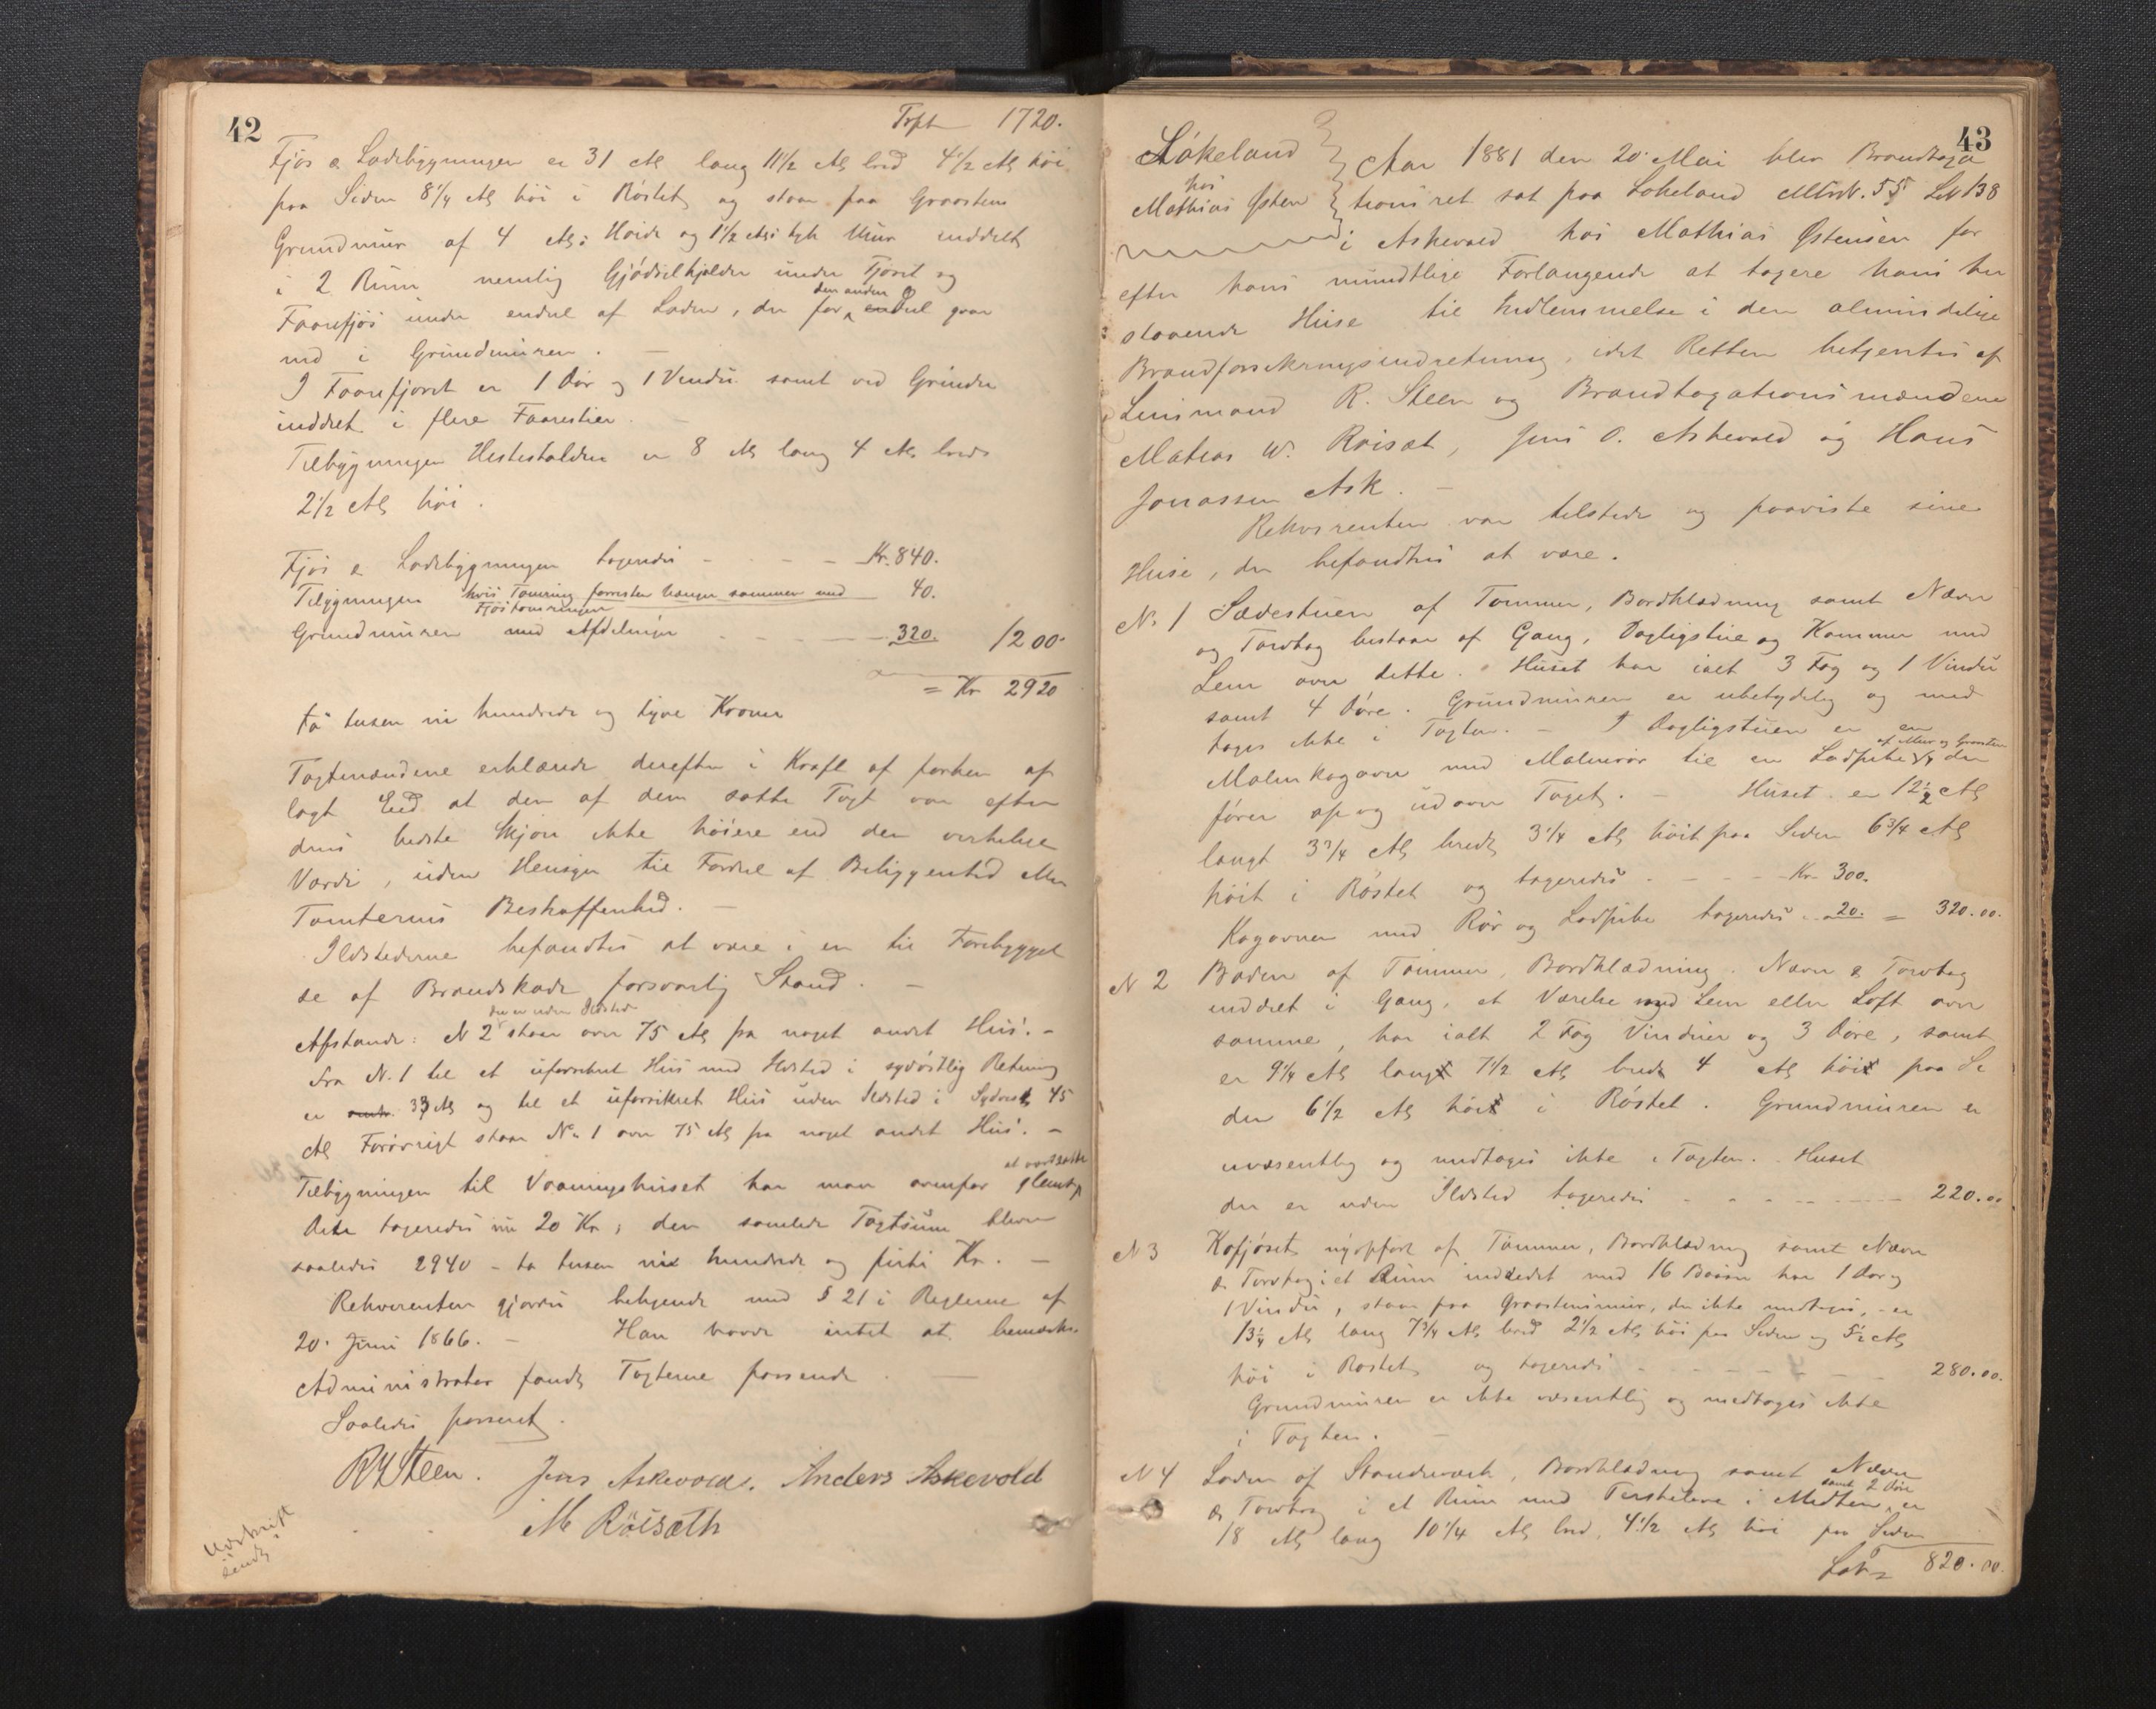 42
Tspt 1720.
Fjøs & Ladebygningen er 31 Al lang 11½ Al bred 4½ Al høi
paa Siden 8¼ Al høi i Røstet og staar paa Graastens
Grundmur af 4 Al: Høide og 1½ Al: tyk Mur inddelt
i 2 Rum nemlig Gjødselkjelder under Fjøset og
Faarefjøs under endeel af Laden, der for den anden Deel gaar
ned i Grundmuren. —
I Faarefjøset er 1 Dør og 1 Vindu samt ved Grinder
inddelt i flere Faarestier. —
Tilbygningen Hestestalden er 8 Al lang 4 Al bred
2½ Al høi.
Fjøs & Ladebygningen taxeredes - - - - Kr. 840.
Tilbygningen hvis Tømring forresten hænger sammen med 40.
Fjøstømringen
Grundmuren med Afdelinger - - - 320. 1200.
= Kr 2920
to tusen ni hundrede og tyve Kroner
Taxtmændene erklærede derefter i Kraft af forhen af
lagt Eed at den af dem satte Taxt var efter
deres bedste Skjøn ikke høiere end den virkelige
Værdi, uden Hensyn til Fordel af Beliggenhed eller
Tomternes Beskaffenhed. —
Ildstederne befandtes at være i en til Forebyggel
se af Brandskade forsvarlig Stand. —
der er uden Ildsted
Afstande: N 2 staar over 75 Al fra noget andet Hus. —
Fra N. 1 til et uforsikret Hus med Ildsted i sydøstlig Retning
er 33 Al og til et uforsikret Hus uden Ildsted i Sydvest 45
Al Forøvrigt staar No 1 over 75 Al fra noget andet Hus. —
Tilbygningen til Vaaningshuset har man ovenfor glemt at værdsætte
Dette taxeredes nu 20 Kr, den samlede Taxtsum bliver
saaledes 2940 - to tusen ni hundrede og firti Kr. —
Rekvirenten gjordes bekjendt med § 21 i Reglerne af
20. Juni 1866. — Han havde intet at bemærke.
Administrator fandt Taxterne passende. —
Saaledes passeret.
R Steen. Jens Askevold. Anders Askevold
M Röisæth
Udskrift
sendt
43
Løkeland
hos
Mathias Østen
Aar 1881 den 20. Mai blev Brandtaxa
tionsret sat paa Løkeland Mtr N. 55 LN 138
i Askevold hos Mathias Østensen for
efter hans mundtlige Forlangende at taxere hans her
staaende Huse til Indlemmelse i den almindelige
Brandforsikringsindretning, idet Retten betjentes af
Lensmand R. Steen og Brandtaxationsmændene
Matias W. Röisæt, Jens O. Askevold og Hans
Jonassen Ask. —
Rekvirenten var tilstede og paaviste sine
Huse, der befandtes at være.
N. 1 Sædestuen af Tømmer, Bordklædning samt Næver
og Torvtag bestaar af Gang, Dagligstue og Kammer med
Lem over dette. Huset har ialt 3 Fag og 1 Vindu
samt 4 Døre. Grundmuren er ubetydelig og med
tages ikke i Taxten. — I Dagligstuen er en
Malmkogovn med Malmrør til en Ladpibe af Mur og Graasten der
fører op og ud over Taget. — Huset er 12½ Al
langt 3¾ Al bredt 3¼ Al høit paa Siden 6¾ Al
høit i Røstet og taxeredes - - - Kr 300.
Kogovnen med Rør og Ladpibe taxeredes 20. = 320.00.
N 2 Boden af Tømmer, Bordklædning, Næver & Torvtag
inddelt i Gang, et Værelse med Lem eller Loft over
samme, har ialt 2 Fag Vinduer og 3 Døre, samt
er 9¼ Al lang 7½ Al bred 4 Al høi paa Si
den 6½ Al høi i Røstet. Grundmuren er
uvæsentlig og medtages ikke i Taxten. Huset
der er uden Ildsted taxeredes - - - - 220.00
N 3 Kofjøset nyopført af Tømmer, Bordklædning samt Næver
& Torvtag i et Rum indredet med 16 Baase har 1 Dør og
1 Vindu, staar paa Graastensmur, der ikke medtages, - er
13¼ Al lang 7¾ Al bred 2½ Al høi paa Siden og 5½ Al
høi i Røstet og taxeredes - - - - 280.00.
Grundmuren er ikke væsentlig og medtages ikke
i Taxten. —
N 4 Laden af Standværk, Bordklædning samt Næver
& Torvtag i et Rum med Terskelave i Midten, samt 2 Døre er
18 Al lang 10¼ Al bred, 4½ Al høi paa Siden
Lat 820.00.